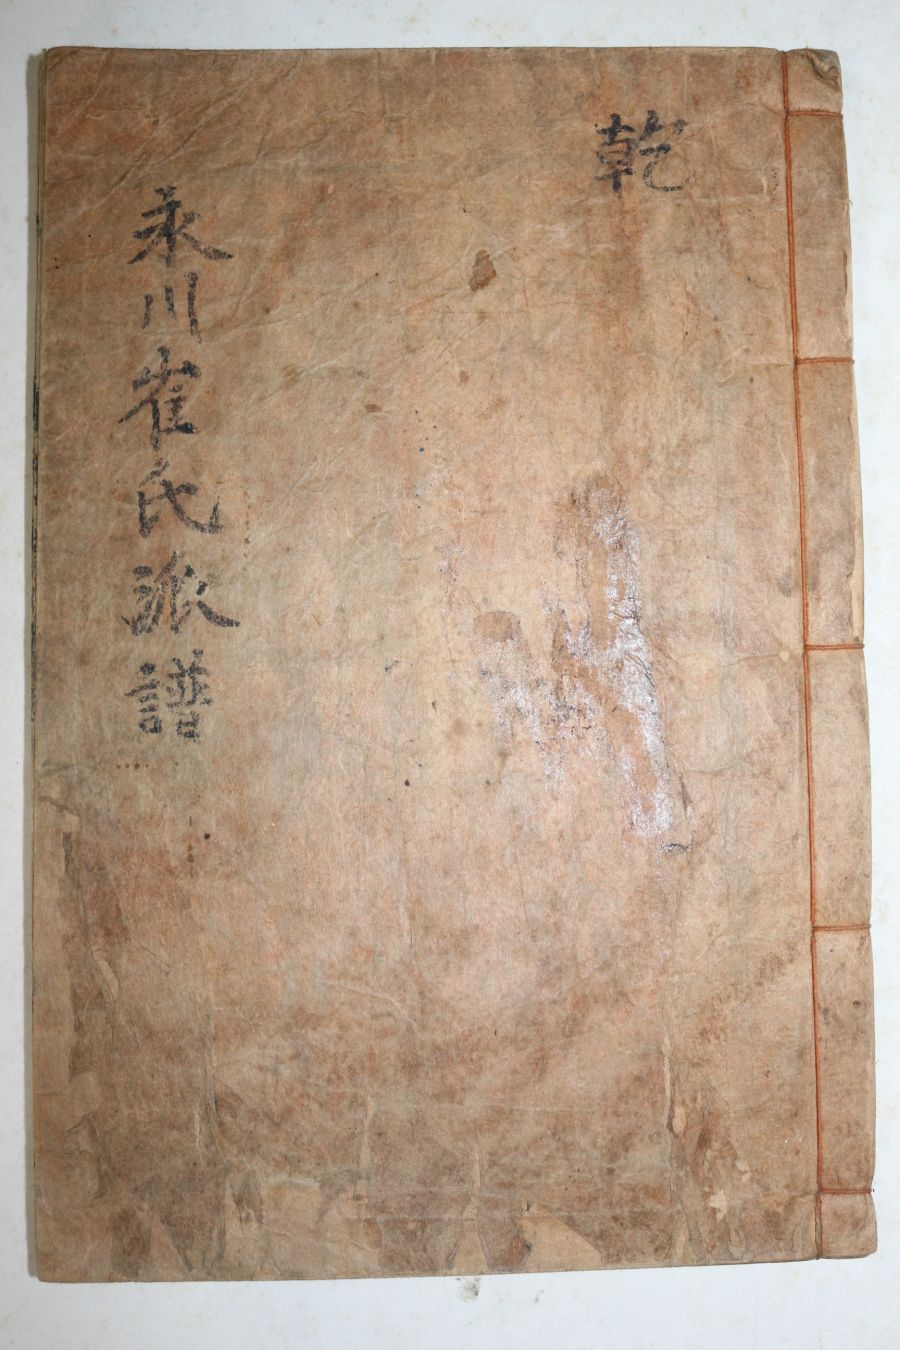 乾
永川崔氏派譜